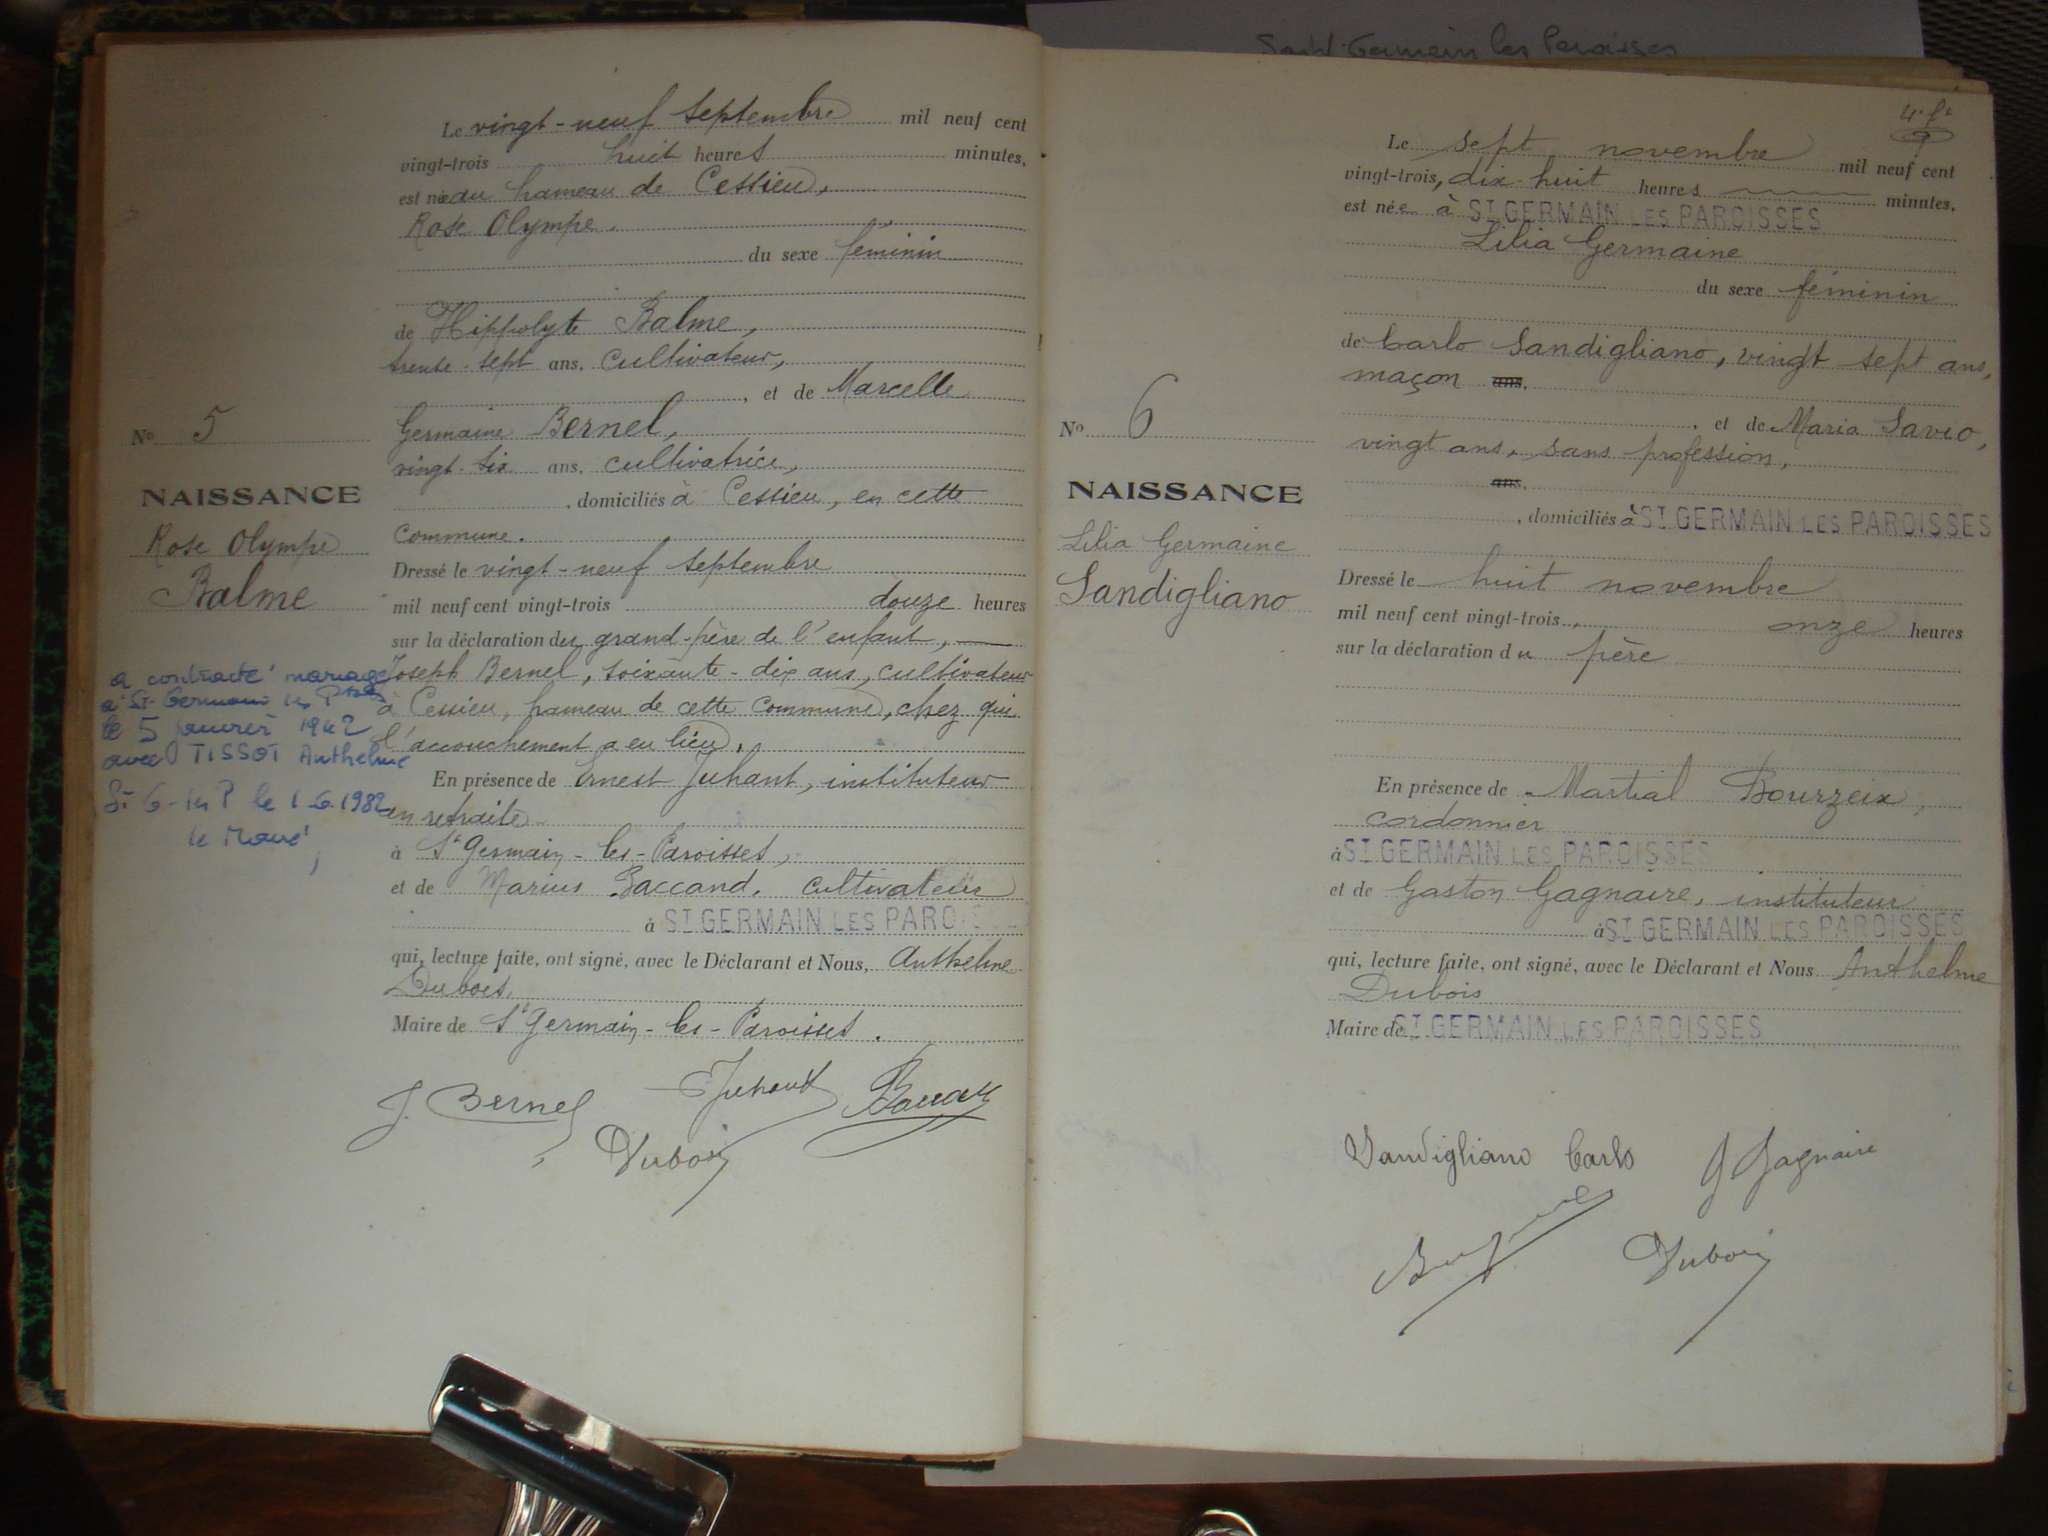 Saint-Germain les Paroisses
Le vingt-neuf septembre mil neuf cent
vingt-trois huit heures minutes,
est née au hameau de Cessieu,
Rose Olympe.
du sexe féminin
de Hippolyte Balme,
trente-sept ans, cultivateur,
, et de Marcelle
Germaine Bernel,
vingt-six ans, cultivatrice,
, domiciliés à Cessieu, en cette
commune.
Dressé le vingt-neuf septembre
mil neuf cent vingt-trois douze heures
sur la déclaration du grand-père de l'enfant,
Joseph Bernel, soixante-dix ans, cultivateur
à Cessieu, hameau de cette commune, chez qui
l'accouchement a eu lieu.
En présence de Ernest Juhant, instituteur
en retraite
à St Germain-les-Paroisses,
et de Marius Baccand, cultivateur
à ST GERMAIN LES PAROI
qui, lecture faite, ont signé, avec le Déclarant et Nous, Anthelme
Dubois,
Maire de St Germain-les-Paroisses.
J. Bernel
EJuhant
Dubois
No 5
NAISSANCE
Rose Olympe
Balme
a contracté mariage
à St-Germain les P
le 5 janvier 1942
avec TISSOT Anthelme
St G-les P le 1.6.1982
le Maire,
4.
Le sept novembre mil neuf cent
vingt-trois, dix-huit heures minutes,
est née à ST GERMAIN LES PAROISSES
Lilia Germaine
du sexe féminin
de Carlo Sandigliano, vingt sept ans,
maçon ans,
, et de Maria Savio,
vingt ans, sans profession,
ans,
, domiciliés à ST GERMAIN LES PAROISSES
Dressé le huit novembre
mil neuf cent vingt-trois, onze heures
sur la déclaration du père
En présence de Martial Bourzeix,
cordonnier
à ST GERMAIN LES PAROISSES
et de Gaston Gagnaire, instituteur
à ST GERMAIN LES PAROISSES
qui, lecture faite, ont signé, avec le Déclarant et Nous Anthelme
Dubois
Maire de ST GERMAIN LES PAROISSES
Sandigliano Carlo
G Gagnaire
Dubois
No 6
NAISSANCE
Lilia Germaine
Sandigliano